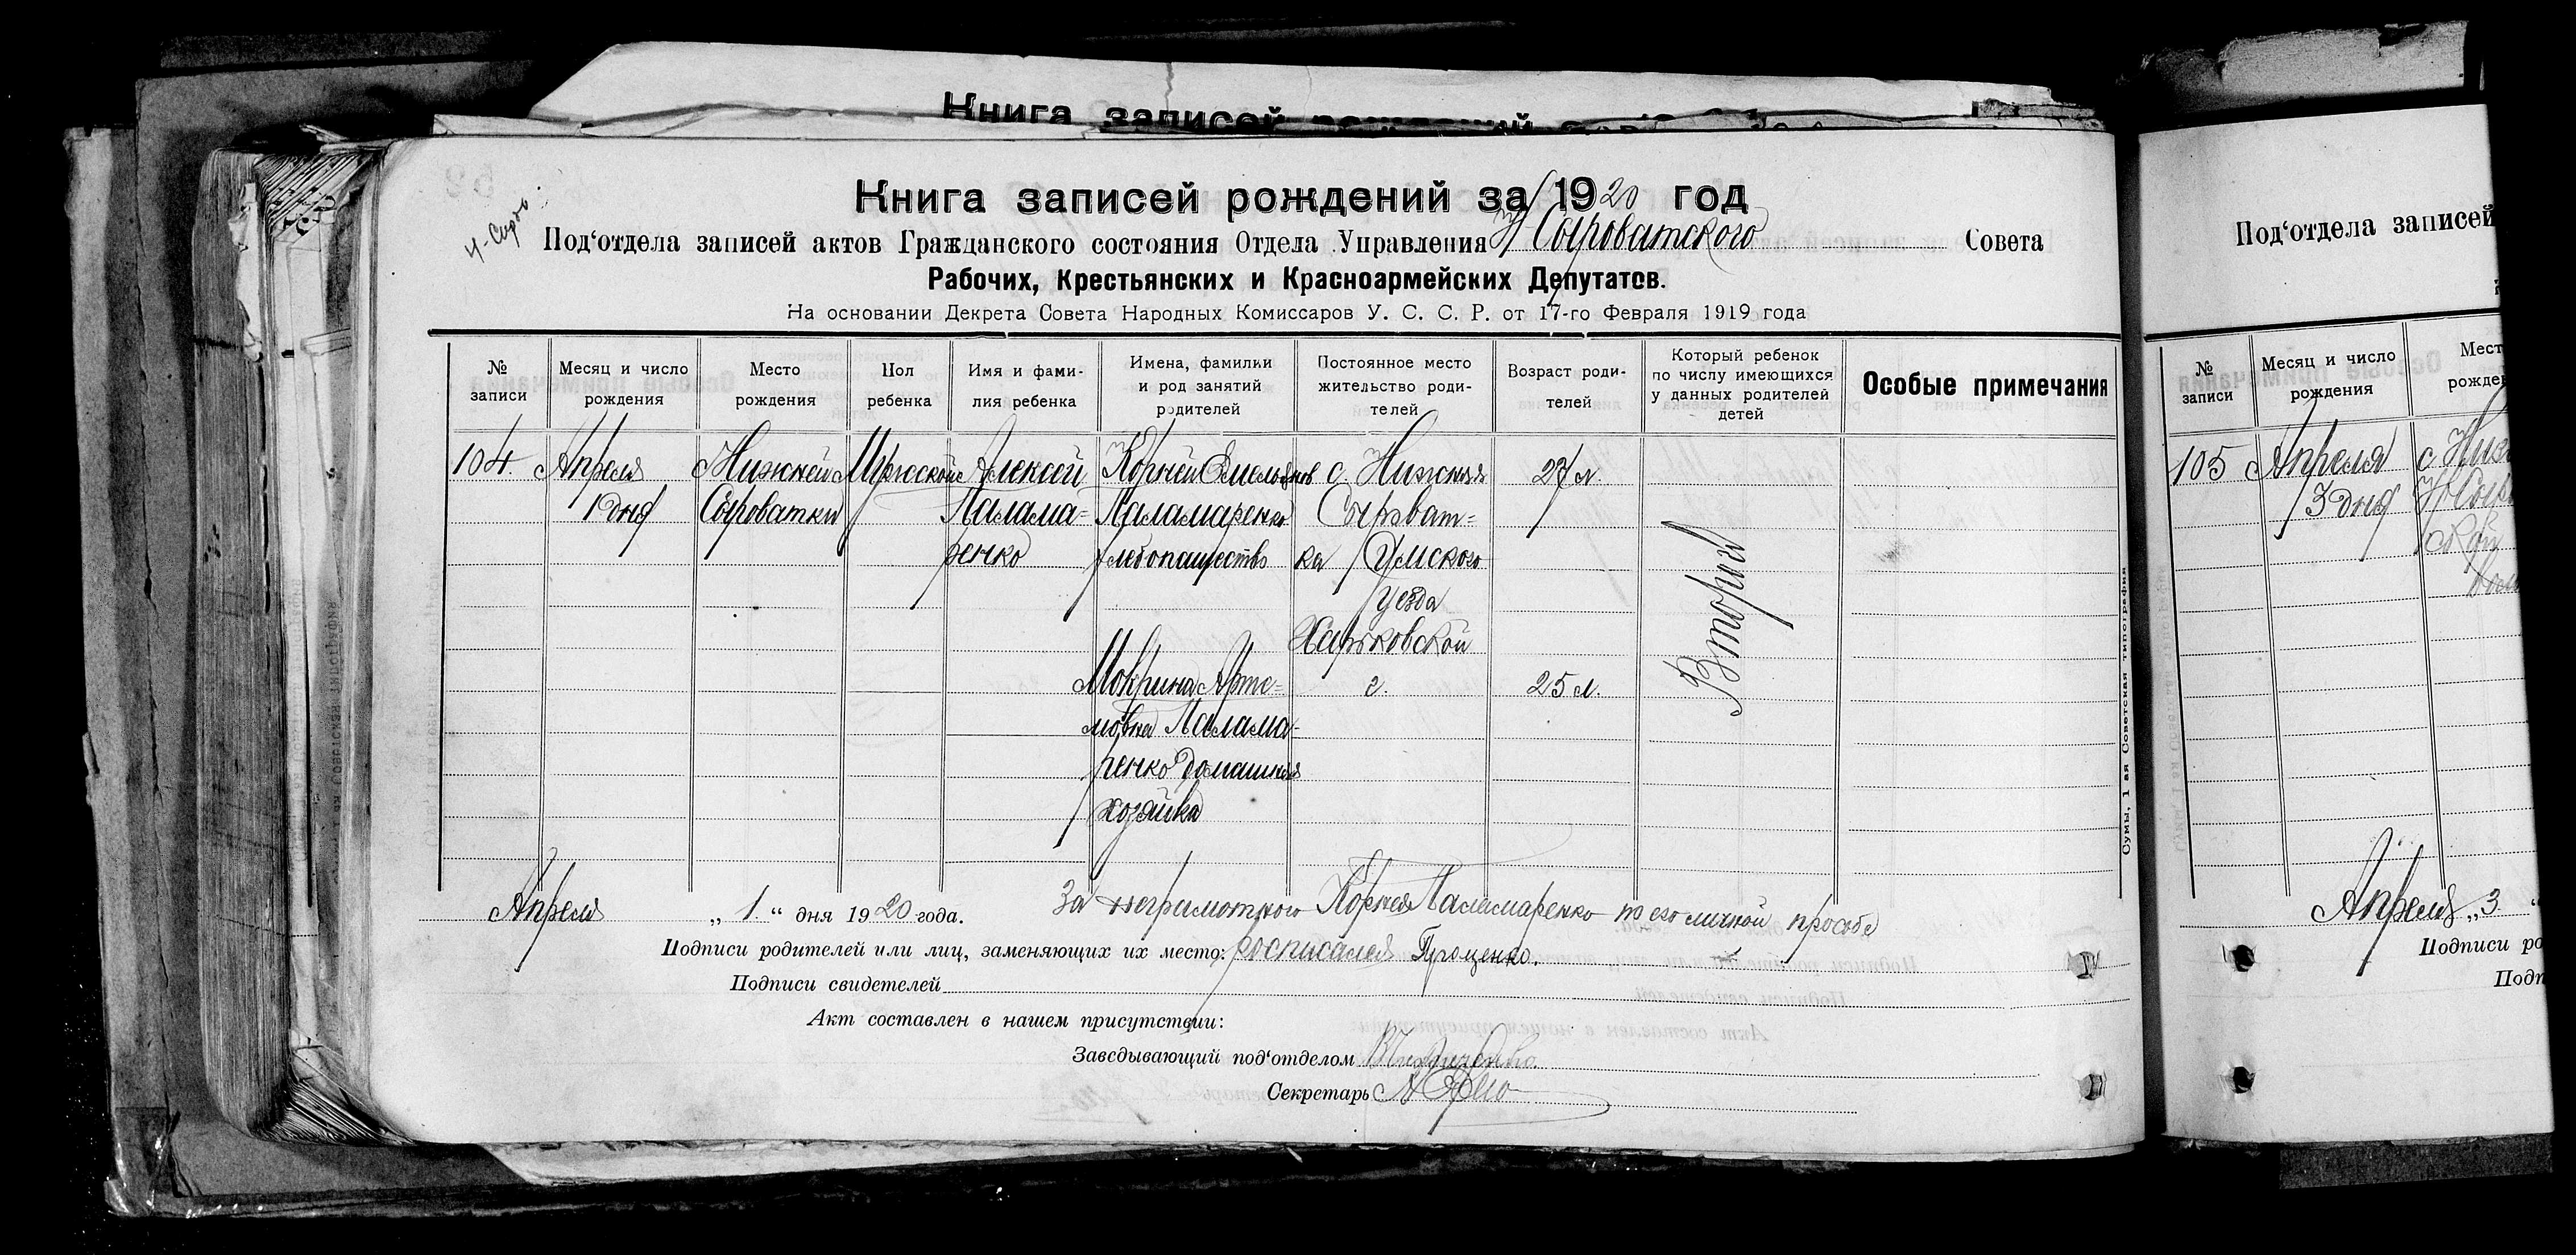 Книга записей
Книга записей рождений за 1920 год
Н-Сыр
Под‘отдела записей актов Гражданского состояния Отдела Управления Н Сыроватского Совета
Рабочих, Крестьянских и Красноармейских Депутатов.
На основании Декрета Совета Народных Комиссаров У. С. С. Р. от 17-го Февраля 1919 года
№ записи
Месяц и число рождения
Место рождения
Пол ребенка
Имя и фами-
лия ребенка
Имена, фамилии
и род занятий
родителей
Постоянное место
жительство роди-
телей
Возраст роди-
телей
Который ребенок
по числу имеющихся
у данных родителей
детей
Особые примечания
104. Апреля Нижней Мужской Алексей Корней Емельянов с. Нижняя 27 л.
1 дня Сыроватки Палама= Паламаренко Сыроват=
ренко хлебопашество ка Сумского
уезда
Харьковской
Второй
Мокрина Арте= г. 25 л.
мовна Палама-
ренко домашняя
хозяйка
Апреля „ 1 “ дня 1920 года. За неграмотного Корнея Паламаренко по его личной прозбе
Подписи родителей или лиц, заменяющих их место: росписался Гроценко.
Подписи свидетелей
Акт составлен в нашем присутствии:
Заведывающий под‘отделом
Секретарь
Сумы, 1 ая Советская типография
Под‘отдела записей
№ записи
Месяц и число рождения
Мест
рожден
105 Апреля с Ниж
3 дня Н Сыр
ской
вол
Апреля „ 3 “
Подписи ро
Подп